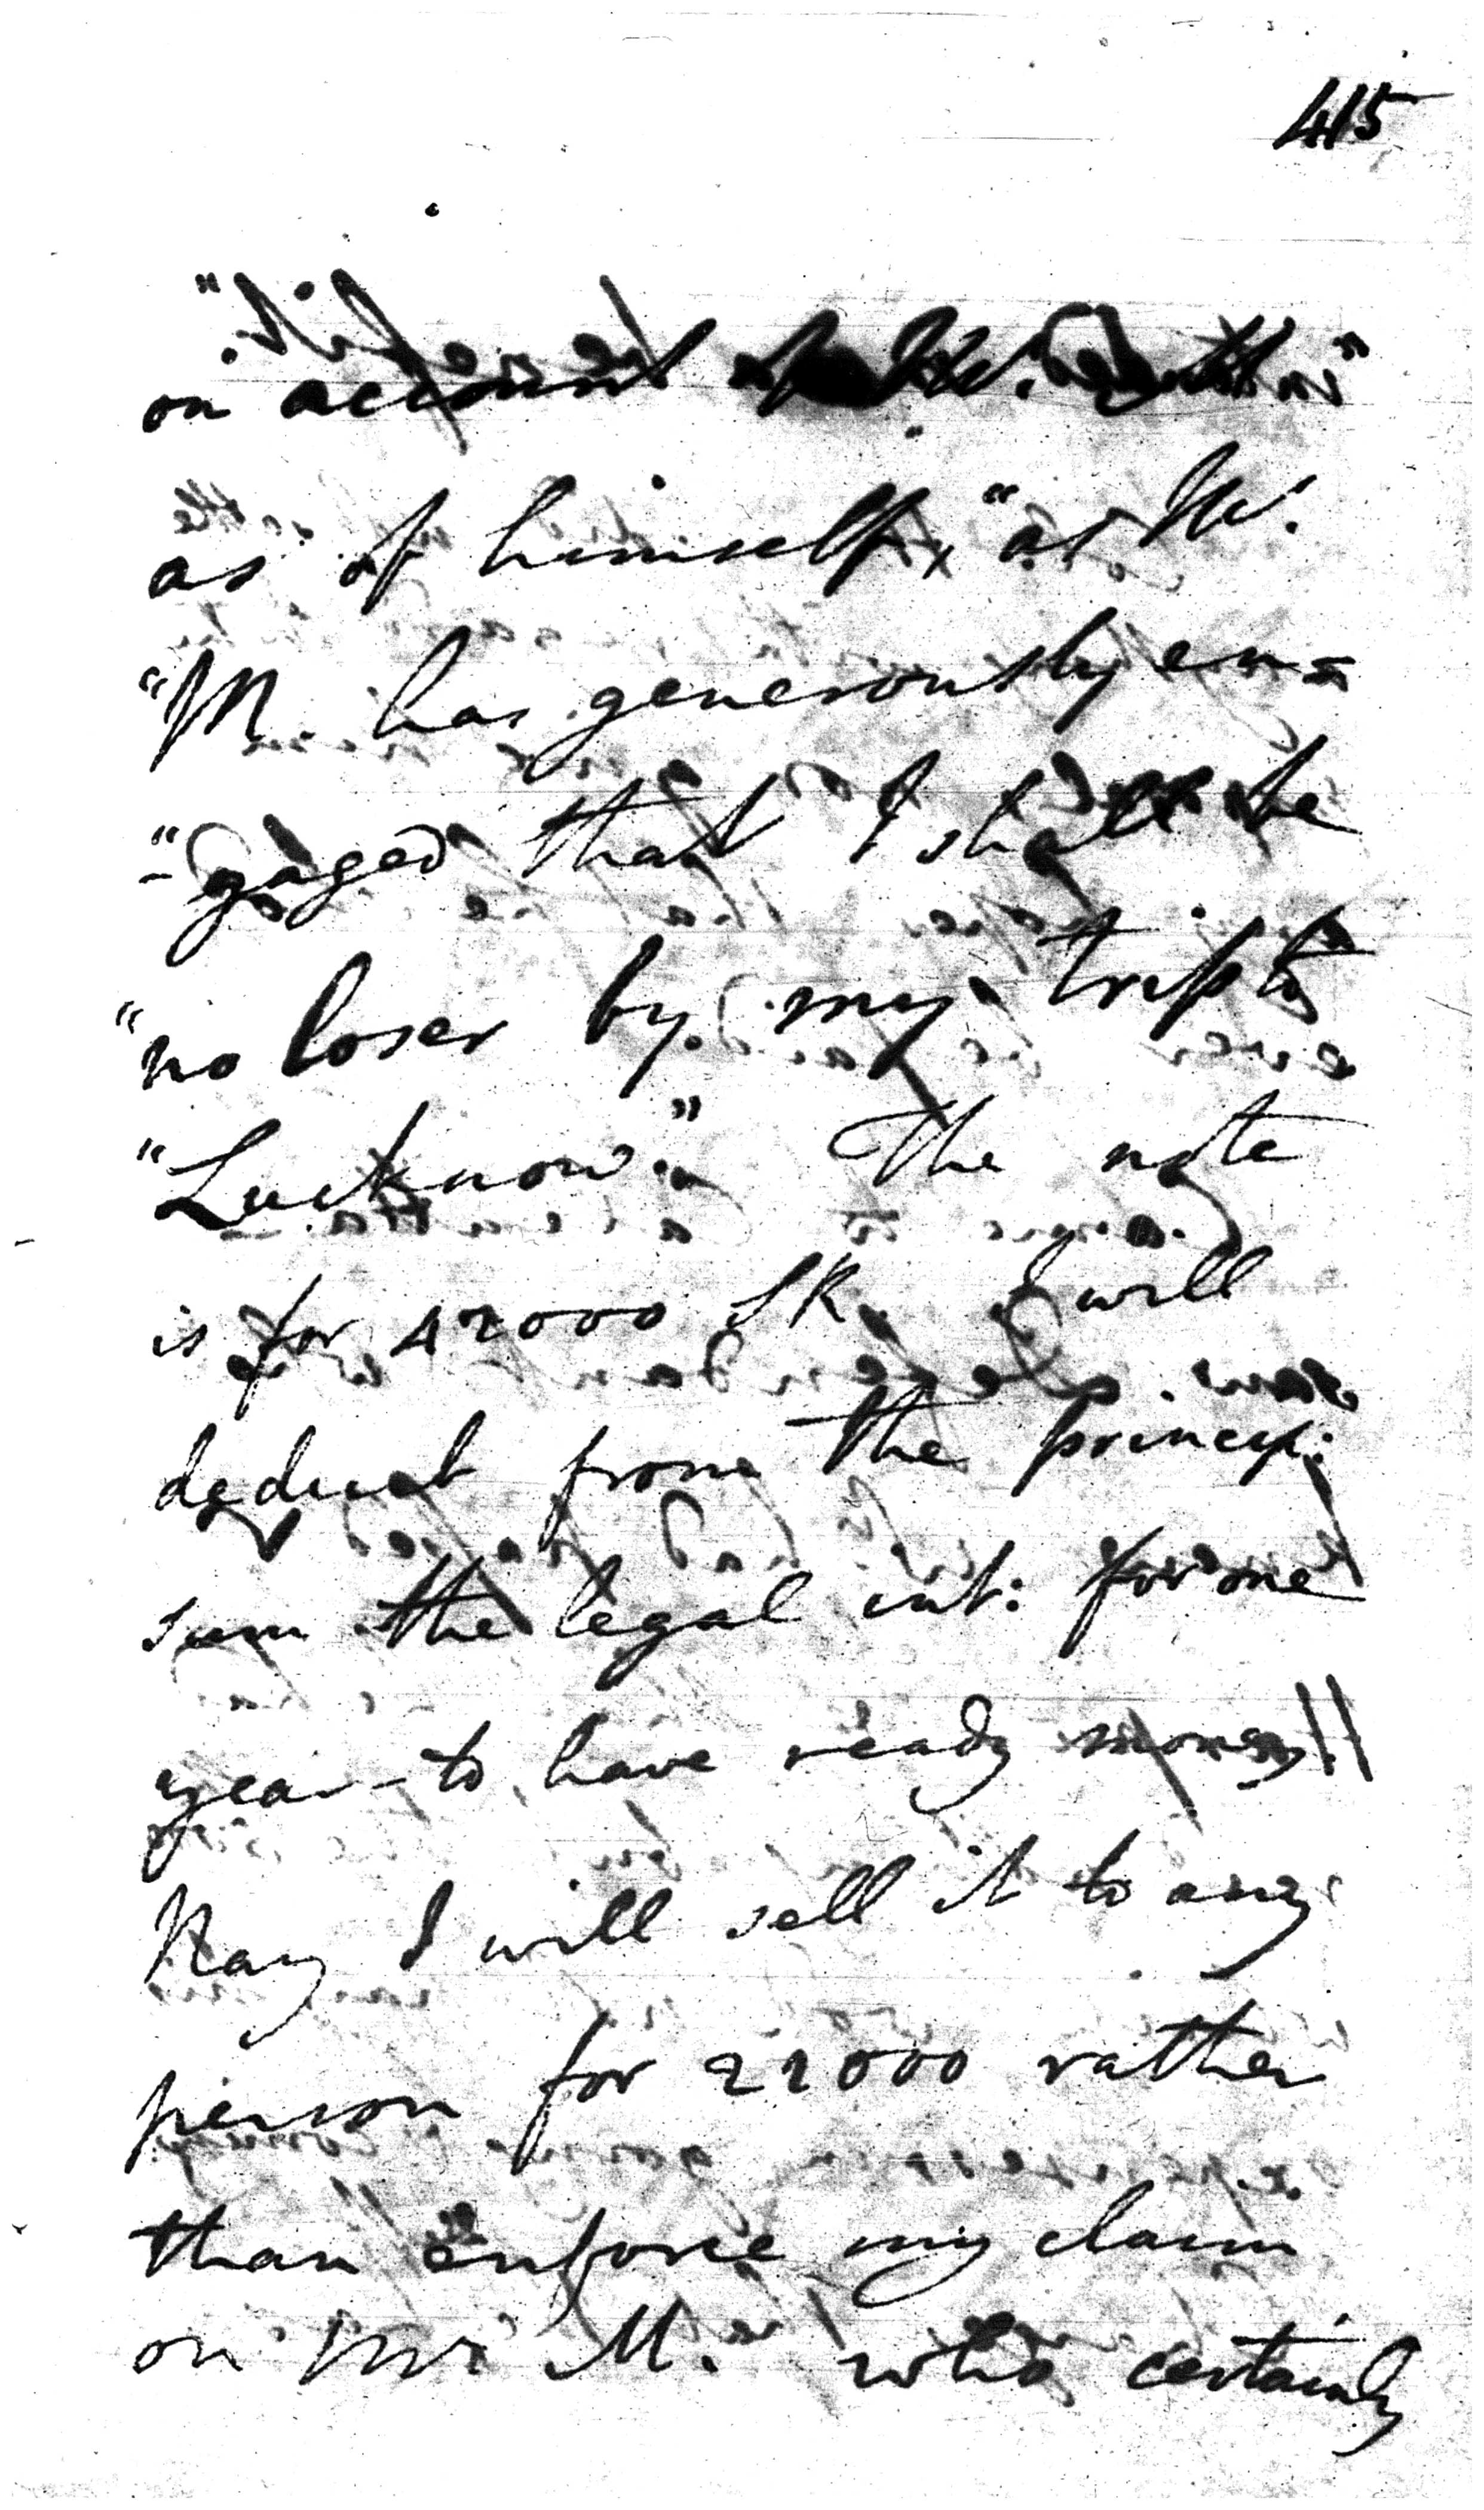 415
on account of W.
as of himself, "as W.
"M. has generously en=
"-gaged that I shall be
"no loser by my trip to
"Lucknow." The note
is for 42000 SR. I will
deduct from the princip:
sum the legal int: for one
year - to have ready money!!
Nay I will sell it to any
person for 22000 rather
than enforce my claim
on Mr M. who certainly